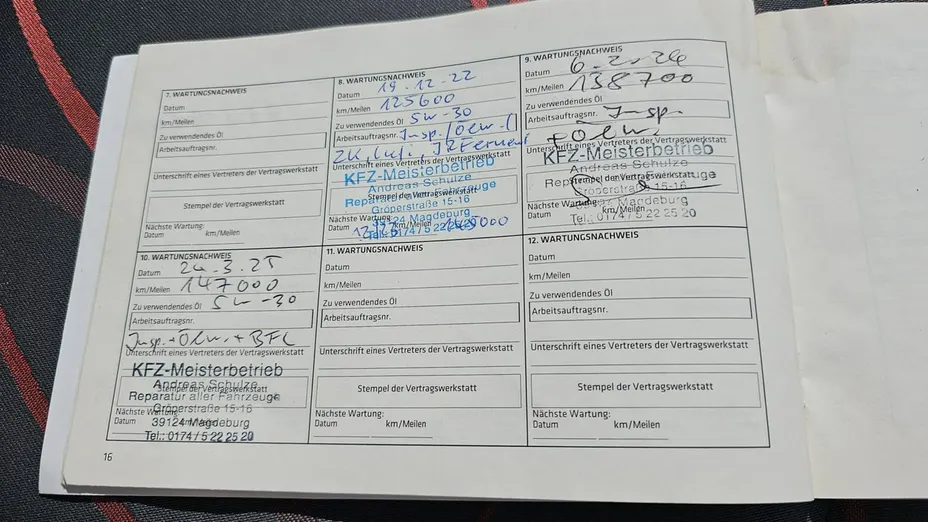 7. WARTUNGSNACHWEIS
Datum
km/Meilen
Zu verwendendes Öl
Arbeitsauftragsnr.
Unterschrift eines Vertreters der Vertragswerkstatt
Stempel der Vertragswerkstatt
Nächste Wartung:
Datum km/Meilen
8. WARTUNGSNACHWEIS
Datum 19.12.22
km/Meilen 125600
Zu verwendendes Öl 5W-30
Arbeitsauftragsnr. Insp./Ölw./
ZK, Lufi,
Unterschrift eines Vertreters der Vertragswerkstatt
KFZ-Meisterbetrieb
Andreas Schulze
Reparatur aller Fahrzeuge
Stempel der Vertragswerkstatt
Gröperstraße 15-16
39124 Magdeburg
Nächste Wartung:
Datum km/Meilen
Tel.: 0174 / 5 22 25 20
9. WARTUNGSNACHWEIS
Datum 6.2.24
km/Meilen 138700
Zu verwendendes Öl
Arbeitsauftragsnr. Insp.
+Ölw.
Unterschrift eines Vertreters der Vertragswerkstatt
KFZ-Meisterbetrieb
Andreas Schulze
Reparatur aller Fahrzeuge
Stempel der Vertragswerkstatt
Gröperstraße 15-16
39124 Magdeburg
Nächste Wartung:
Datum km/Meilen
Tel.: 0174 / 5 22 25 20
10. WARTUNGSNACHWEIS
Datum 24.3.25
km/Meilen 147000
Zu verwendendes Öl 5W-30
Arbeitsauftragsnr.
Insp.+Ölw.+BFL
Unterschrift eines Vertreters der Vertragswerkstatt
KFZ-Meisterbetrieb
Andreas Schulze
Stempel der Vertragswerkstatt
Reparatur aller Fahrzeuge
Gröperstraße 15-16
Nächste Wartung:
Datum km/Meilen
39124 Magdeburg
Tel.: 0174 / 5 22 25 20
11. WARTUNGSNACHWEIS
Datum
km/Meilen
Zu verwendendes Öl
Arbeitsauftragsnr.
Unterschrift eines Vertreters der Vertragswerkstatt
Stempel der Vertragswerkstatt
Nächste Wartung:
Datum km/Meilen
12. WARTUNGSNACHWEIS
Datum
km/Meilen
Zu verwendendes Öl
Arbeitsauftragsnr.
Unterschrift eines Vertreters der Vertragswerkstatt
Stempel der Vertragswerkstatt
Nächste Wartung:
Datum km/Meilen
16